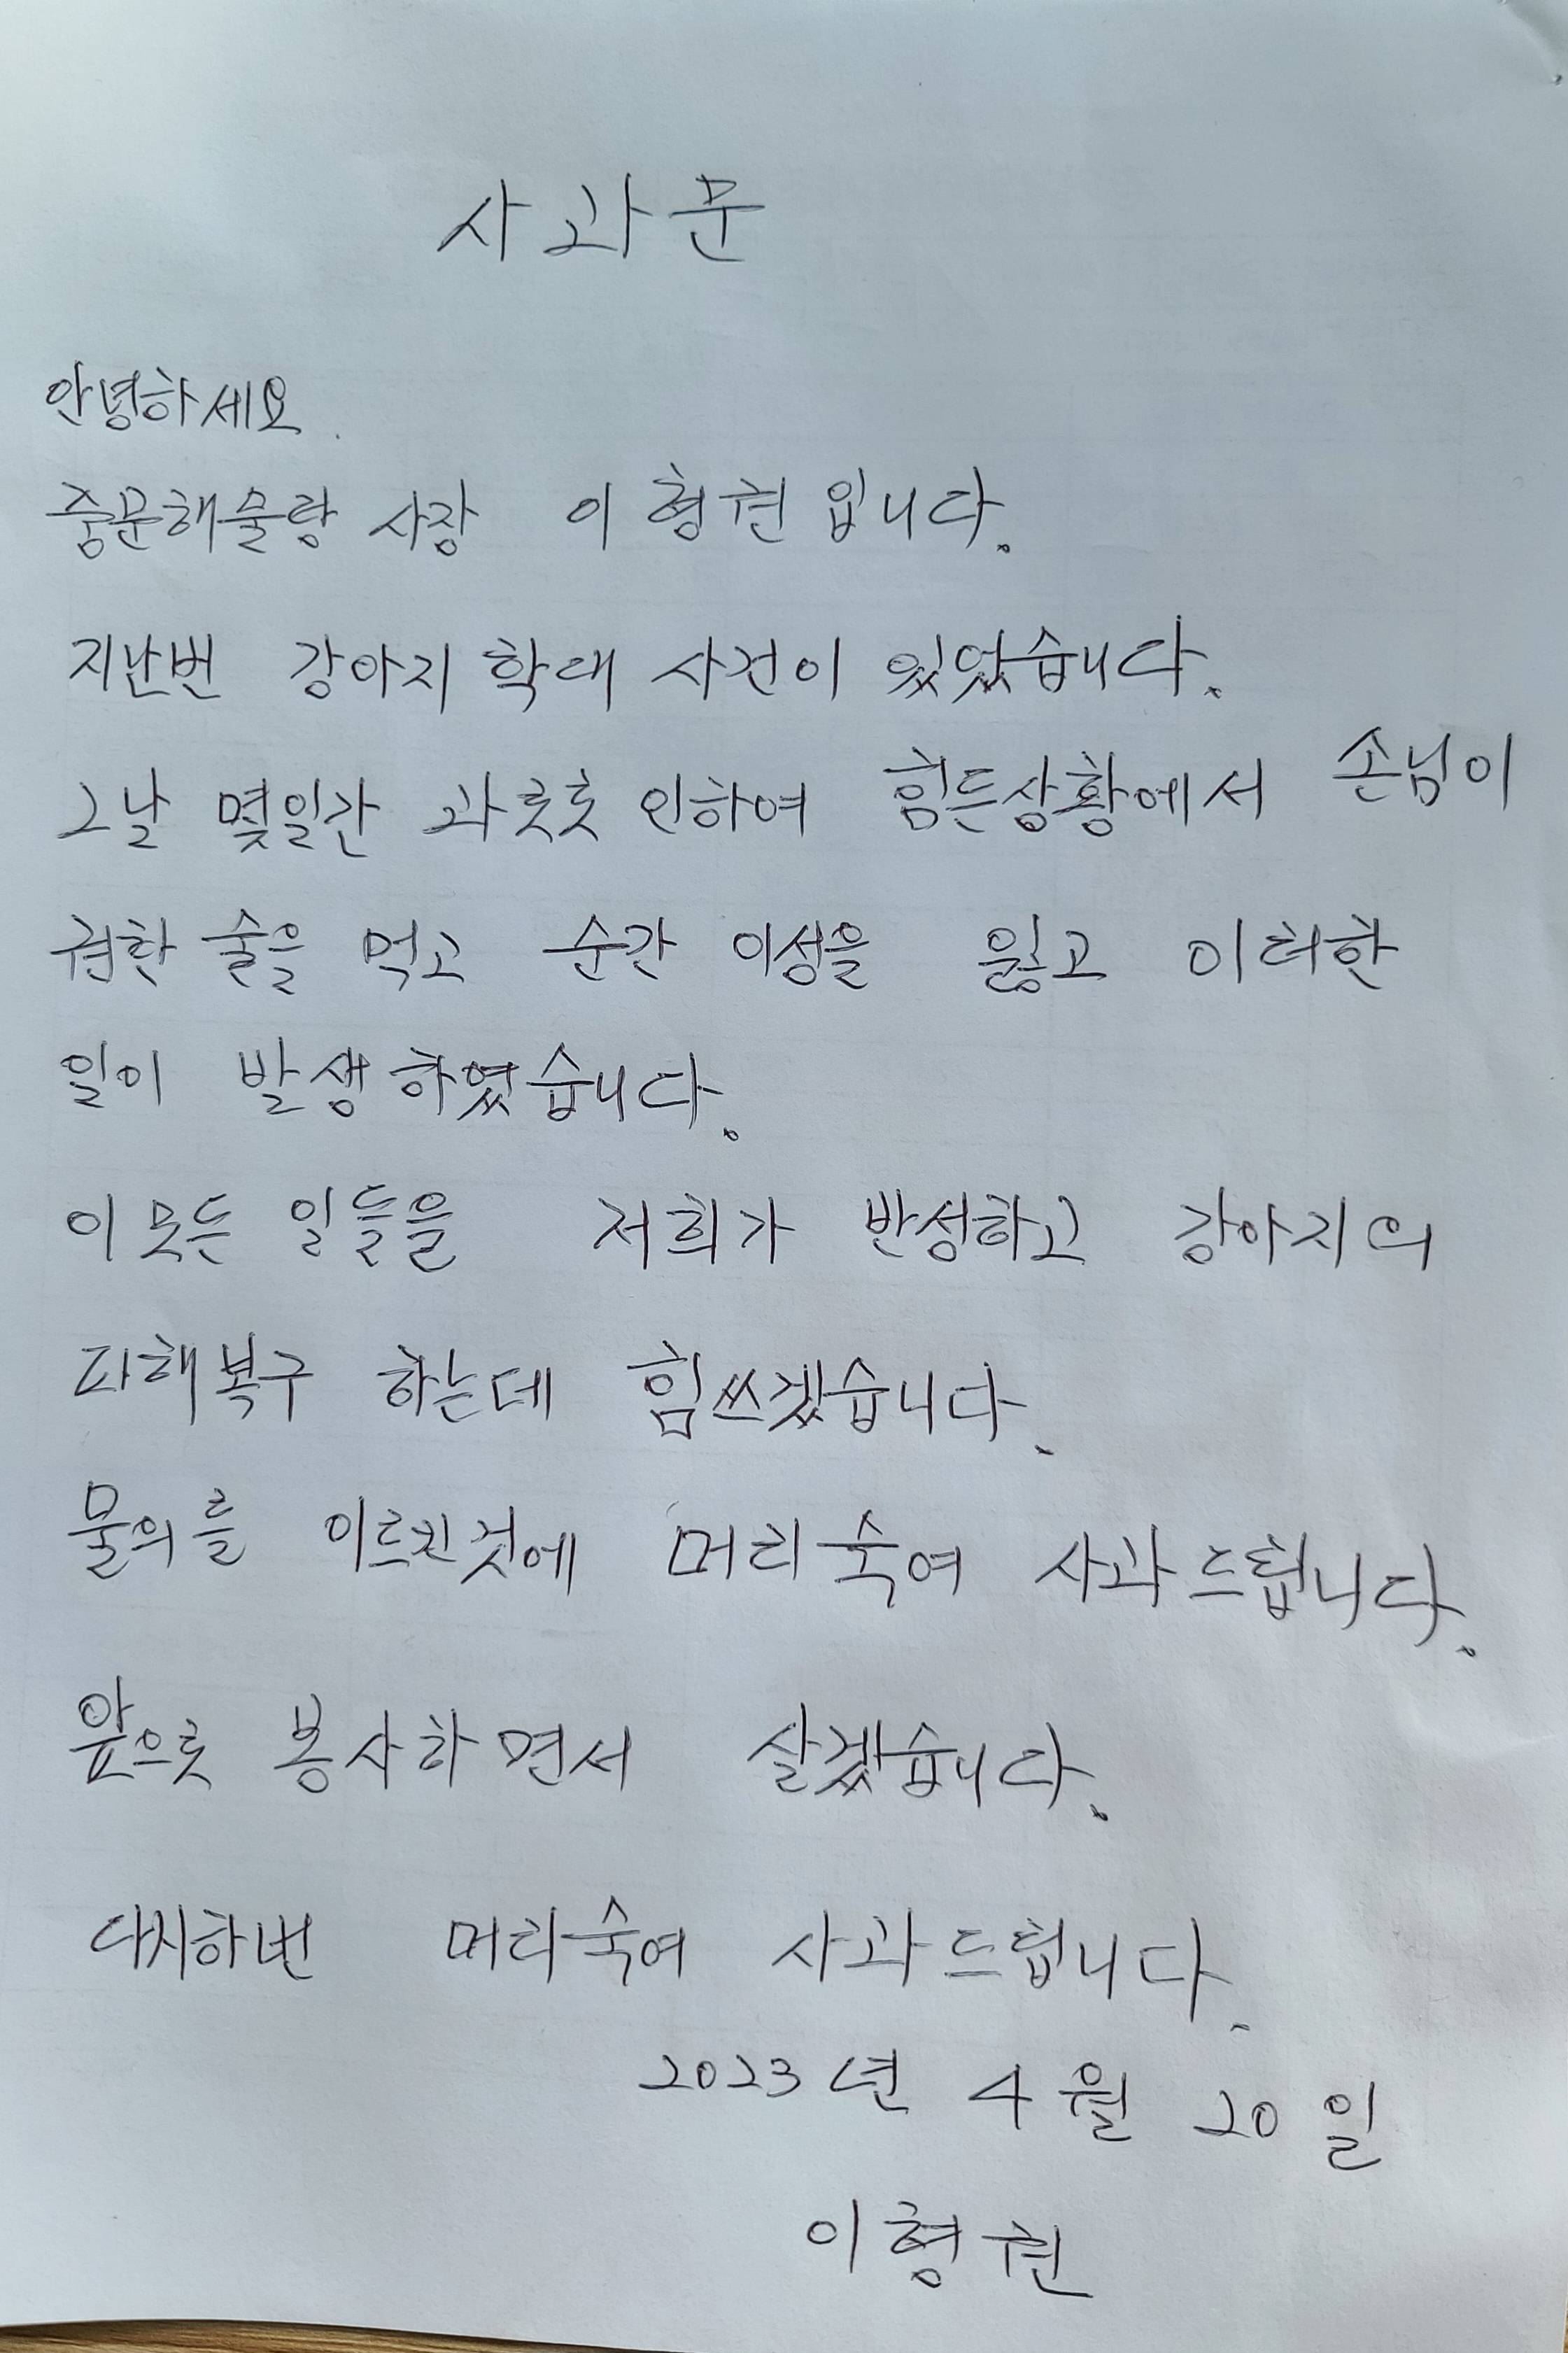 사과문
안녕하세요.
중문해술랑 사장 이형권입니다.
지난번 강아지 학대 사건이 있었습니다.
그날 몇일간 과로로 인하여 힘든상황에서 손님이
권한 술을 먹고 순간 이성을 잃고 이러한
일이 발생하였습니다.
이 모든 일들을 저희가 반성하고 강아지의
피해복구 하는데 힘쓰겠습니다.
물의를 이르킨것에 머리숙여 사과드립니다.
앞으로 봉사하면서 살겠습니다.
다시하번 머리숙여 사과드립니다.
2023년 4월 20일
이형권